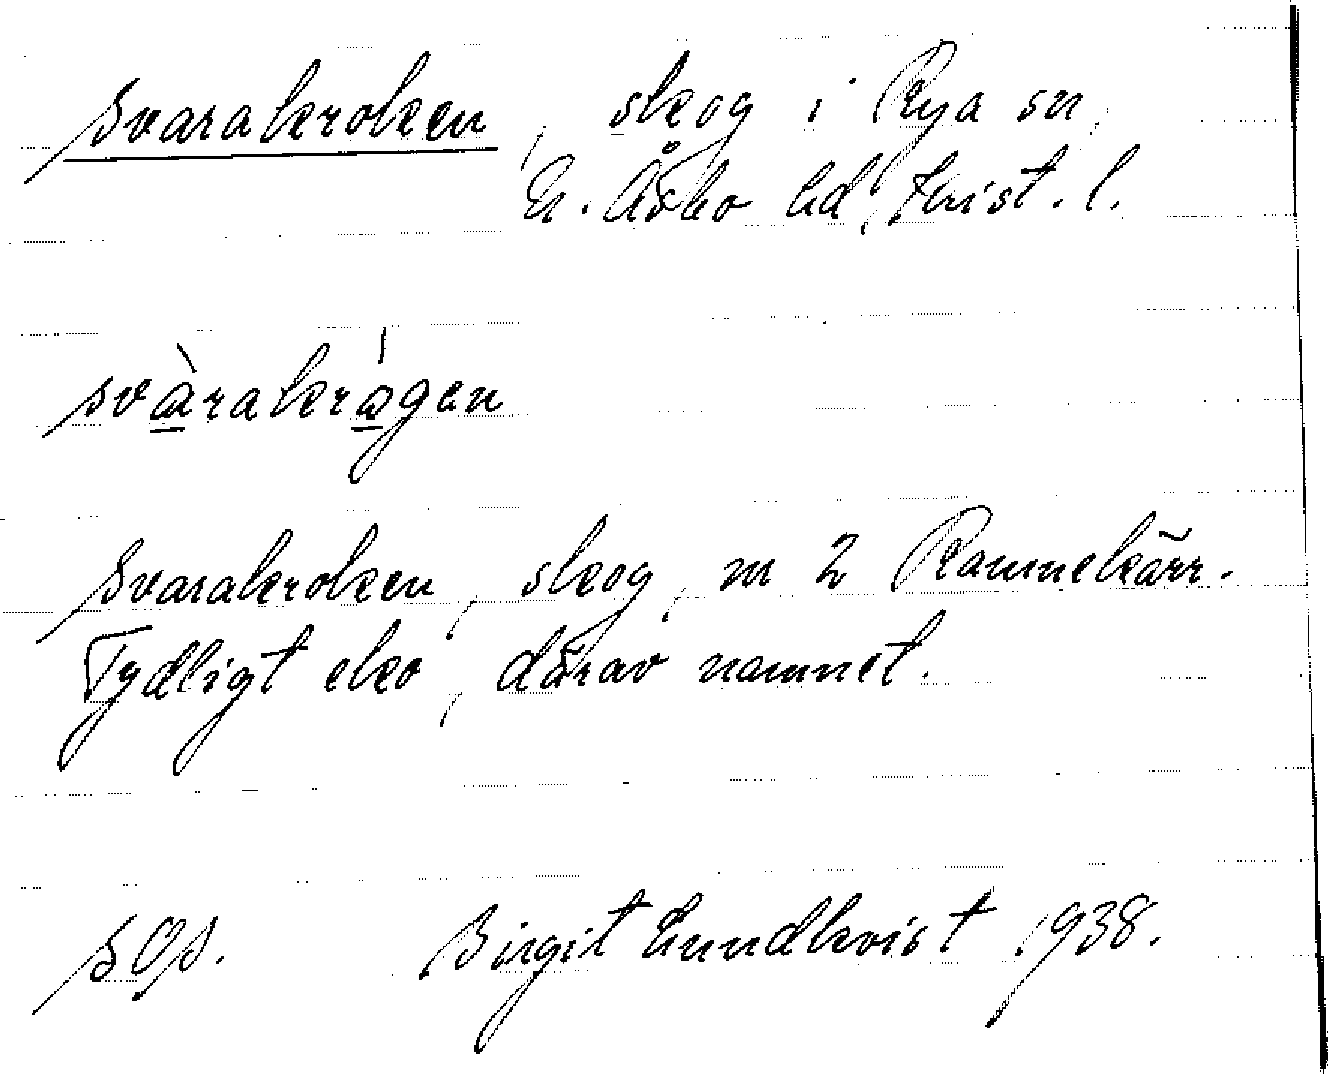 Svarakroken, skog i Rya sn,
N. Åsbo hd, Krist. l.
svàrakrågen
Svarakroken, skog, m 2 Rammekärr.
Tydligt eko, därav namnet.
SOS. Birgit Lundkvist 1938.